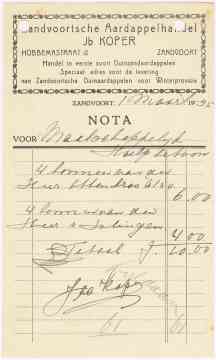 Zandvoortsche Aardappelhandel
Jb KOPER
HOBBEMASTRAAT
ZANDVOORT
Handel in eerste soort Duinzandaardappelen
Speciaal adres voor de levering
van Zandvoortsche Duinaardappelen voor Winterprovisie
ZANDVOORT, 1 Maart 1935
NOTA
VOOR Maatschappelijk
Hulpbetoon
4 bonnen van den
Heer
6.00
4 bonnen van den
Heer
4.00
Totaal f. 10.00
Jac Koper